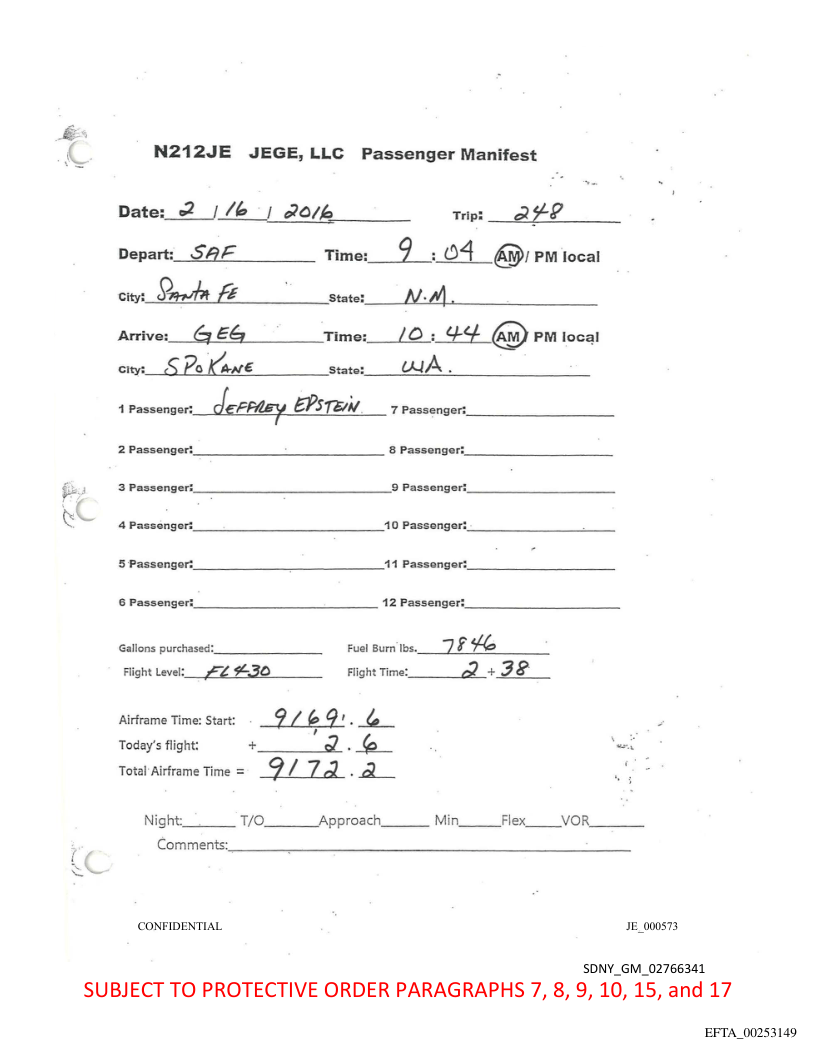 N212JE JEGE, LLC Passenger Manifest
Date: 2 / 16 / 2016 Trip: 248
Depart: SAF Time: 9 : 04 AM / PM local
City: SANTA FE State: N.M.
Arrive: GEG Time: 10 : 44 AM / PM local
City: SPOKANE State: WA.
1 Passenger: JEFFREY EPSTEIN 7 Passenger:
2 Passenger: 8 Passenger:
3 Passenger: 9 Passenger:
4 Passenger: 10 Passenger:
5 Passenger: 11 Passenger:
6 Passenger: 12 Passenger:
Gallons purchased: Fuel Burn lbs. 7846
Flight Level: FL430 Flight Time: 2 + 38
Airframe Time: Start: 9169.6
Today's flight: + 2.6
Total Airframe Time = 9172.2
Night: T/O Approach Min Flex VOR
Comments:
CONFIDENTIAL JE_000573
SDNY_GM_02766341
SUBJECT TO PROTECTIVE ORDER PARAGRAPHS 7, 8, 9, 10, 15, and 17
EFTA_00253149